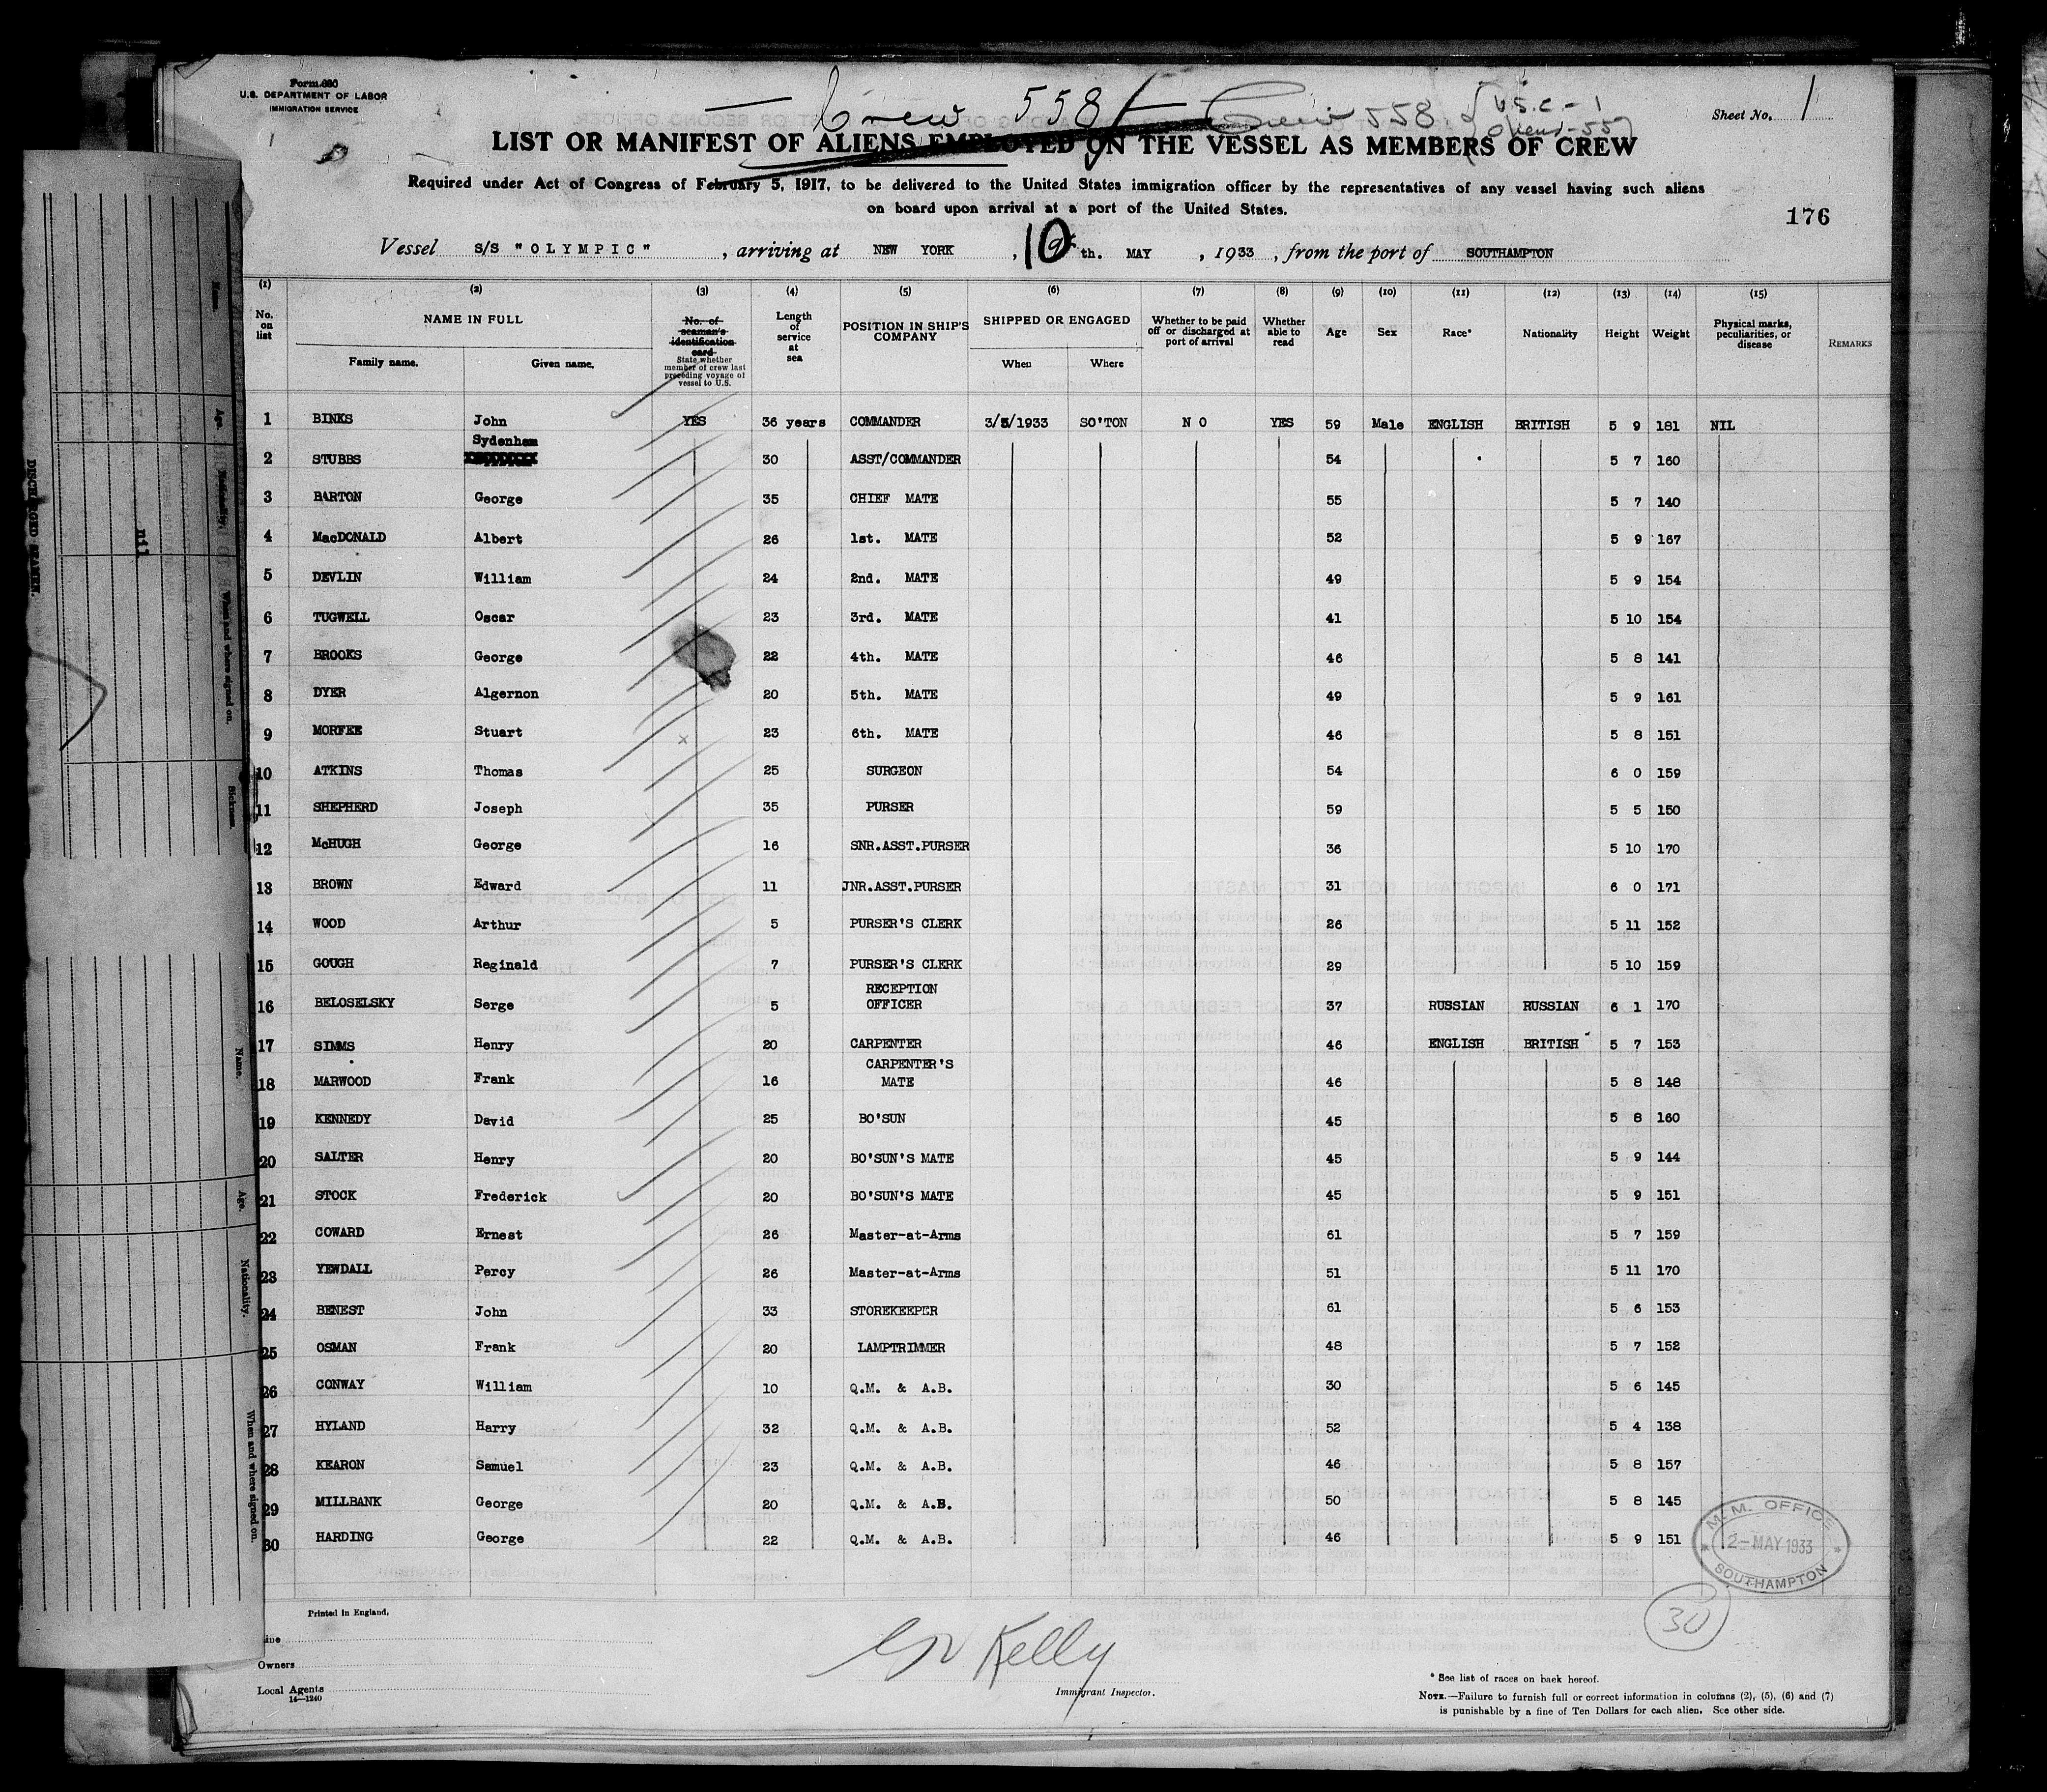 Form 680
U.S. DEPARTMENT OF LABOR
IMMIGRATION SERVICE
Crew 558
Crew 558 { U.S.C - 1
Aliens - 557
Sheet No. 1
LIST OR MANIFEST OF ALIENS EMPLOYED ON THE VESSEL AS MEMBERS OF CREW
Required under Act of Congress of February 5, 1917, to be delivered to the United States immigration officer by the representatives of any vessel having such aliens
on board upon arrival at a port of the United States.
176
Vessel S/S "OLYMPIC", arriving at NEW YORK, 10 th. MAY, 1933, from the port of SOUTHAMPTON
(1) (2) (3) (4) (5) (6) (7) (8) (9) (10) (11) (12) (13) (14) (15)
No. on list NAME IN FULL Family name. Given name. No. of seaman's identification card State whether member of crew last preceding voyage of vessel to U.S. Length of service at sea POSITION IN SHIP'S COMPANY SHIPPED OR ENGAGED When Where Whether to be paid off or discharged at port of arrival Whether able to read Age Sex Race* Nationality Height Weight Physical marks, peculiarities, or disease REMARKS
1 BINKS John YES 36 years COMMANDER 3/5/1933 SO'TON NO YES 59 Male ENGLISH BRITISH 5 9 181 NIL
2 STUBBS Sydenham 30 ASST/COMMANDER 54 5 7 160
3 BARTON George 35 CHIEF MATE 55 5 7 140
4 MacDONALD Albert 26 1st. MATE 52 5 9 167
5 DEVLIN William 24 2nd. MATE 49 5 9 154
6 TUGWELL Oscar 23 3rd. MATE 41 5 10 154
7 BROOKS George 22 4th. MATE 46 5 8 141
8 DYER Algernon 20 5th. MATE 49 5 9 161
9 MORFEE Stuart x 23 6th. MATE 46 5 8 151
10 ATKINS Thomas 25 SURGEON 54 6 0 159
11 SHEPHERD Joseph 35 PURSER 59 5 5 150
12 McHUGH George 16 SNR.ASST.PURSER 36 5 10 170
13 BROWN Edward 11 JNR.ASST.PURSER 31 6 0 171
14 WOOD Arthur 5 PURSER'S CLERK 26 5 11 152
15 GOUGH Reginald 7 PURSER'S CLERK 29 5 10 159
16 BELOSELSKY Serge 5 RECEPTION OFFICER 37 RUSSIAN RUSSIAN 6 1 170
17 SIMMS Henry 20 CARPENTER 46 ENGLISH BRITISH 5 7 153
18 MARWOOD Frank 16 CARPENTER'S MATE 46 5 8 148
19 KENNEDY David 25 BO'SUN 45 5 8 160
20 SALTER Henry 20 BO'SUN'S MATE 45 5 9 144
21 STOCK Frederick 20 BO'SUN'S MATE 45 5 9 151
22 COWARD Ernest 26 Master-at-Arms 61 5 7 159
23 YEWDALL Percy 26 Master-at-Arms 51 5 11 170
24 BENEST John 33 STOREKEEPER 61 5 6 153
25 OSMAN Frank 20 LAMPTRIMMER 48 5 7 152
26 CONWAY William 10 Q.M. & A.B. 30 5 6 145
27 HYLAND Harry 32 Q.M. & A.B. 52 5 4 138
28 KEARON Samuel 23 Q.M. & A.B. 46 5 8 157
29 MILLBANK George 20 Q.M. & A.B. 50 5 8 145
30 HARDING George 22 Q.M. & A.B. 46 5 9 151
M.M. OFFICE
2-MAY 1933
SOUTHAMPTON
30
Printed in England.
Line
Owners
Local Agents
14-1240
Kelly
Immigrant Inspector.
* See list of races on back hereof.
NOTE.—Failure to furnish full or correct information in columns (2), (5), (6) and (7)
is punishable by a fine of Ten Dollars for each alien. See other side.
DISCHARGED SEAMEN.
nil
Name.
Age.
Nationality.
When and where signed on.
Sickness.
Name.
Age.
Nationality.
When and where signed on.